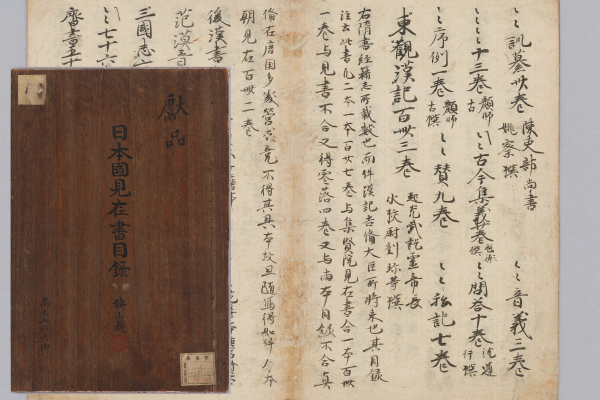 〻〻訓纂卅卷 陳吏部尚書姚察撰 〻〻音義三卷
〻〻〻〻十三卷 顏師古 〻〻古今集義廿卷 顧胤撰 〻〻問答十卷 沈遵行撰
〻〻序例一卷 顏師古撰 〻〻贊九卷 〻〻私記七卷
東觀漢記百卌三卷 起光武訖靈帝長水校尉劉珍等撰
右隋書經籍志所載數也而件漢記吉備大臣所將来也其目録
注云此書凡二本一本百廿七卷与集賢院見在書合一本百卌
一卷与見書不合又得零落四卷又与兩本目録不合真
備在唐國多處營求竟不得其具本故且隨寫得如件今本
朝見在百卌二卷
後漢書
范漢音
三國志六
〻〻七十六
齊書五十
獻品
日本國見在書目録